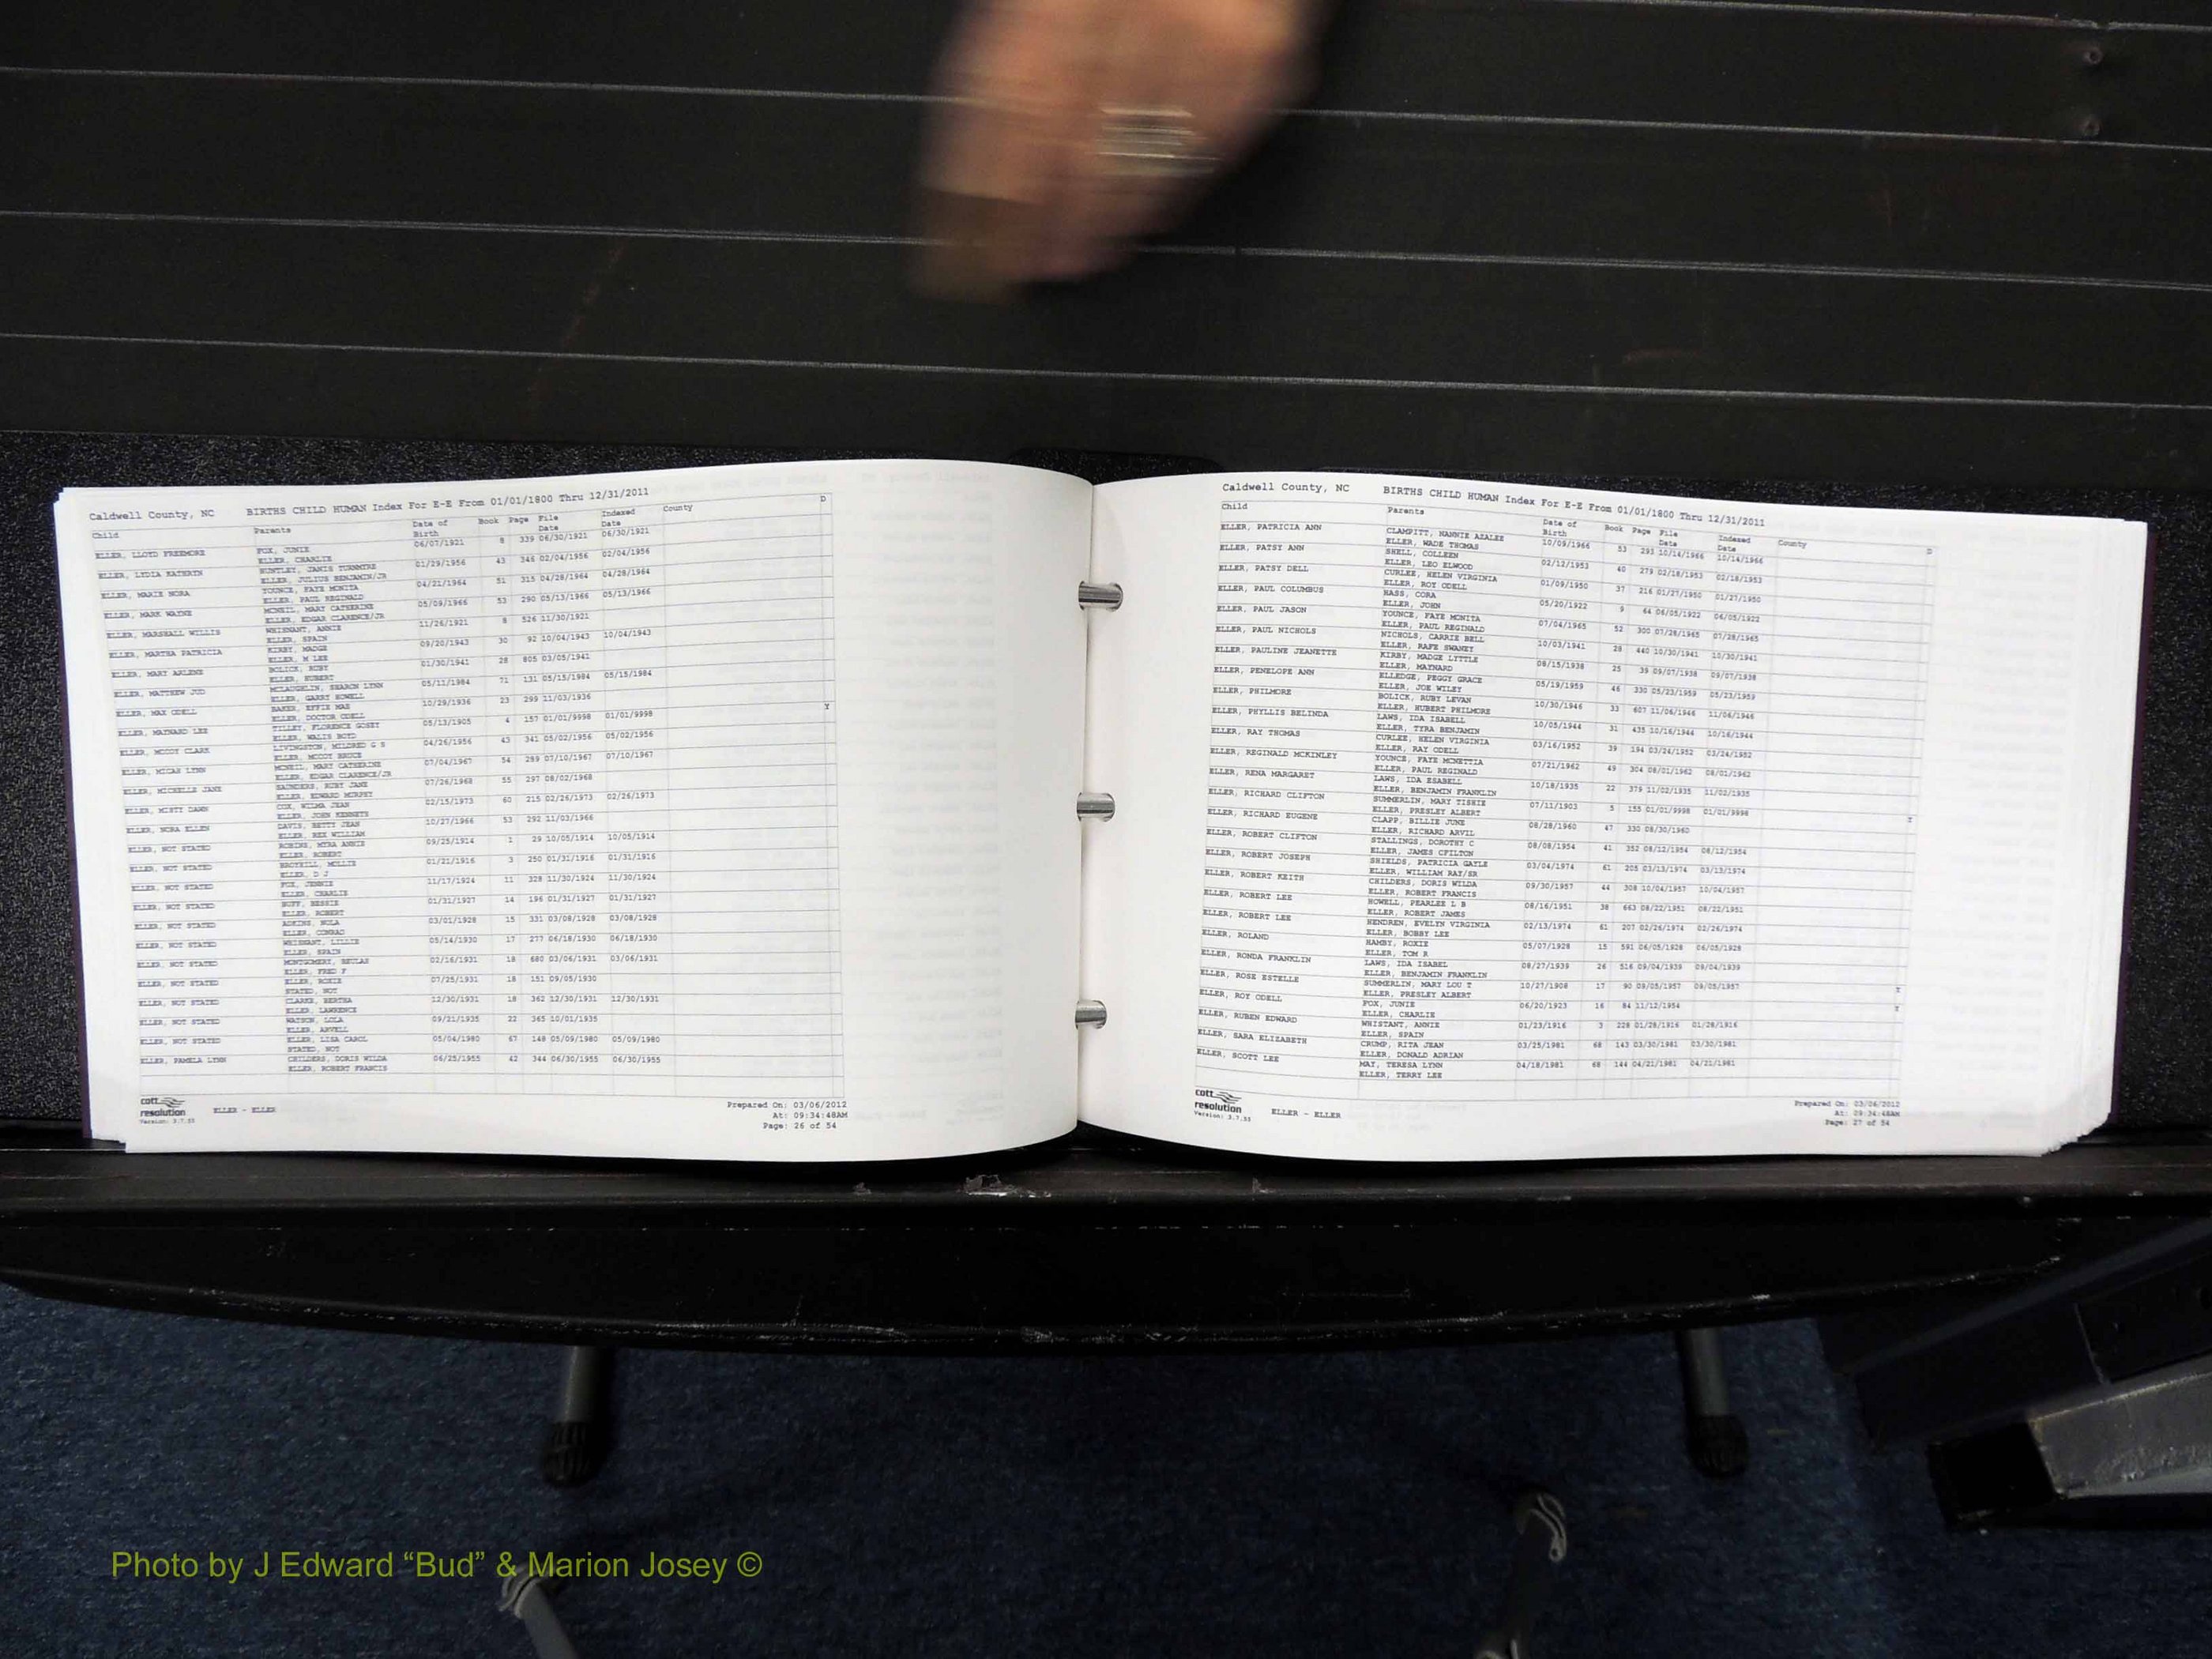 Caldwell County, NC BIRTHS CHILD HUMAN Index For E-E From 01/01/1800 Thru 12/31/2011
Child Parents Date of Birth Book Page File Date Indexed Date County D
ELLER, LLOYD FREEMORE FOX, JUNIE 06/07/1921 8 339 06/30/1921 06/30/1921
ELLER, CHARLIE
ELLER, LYDIA KATHRYN HUNTLEY, JANIS TURNMYRE 01/29/1956 43 346 02/04/1956 02/04/1956
ELLER, JULIUS BENJAMIN/JR
ELLER, MARIE NORA YOUNCE, FAYE MONITA 04/21/1964 51 315 04/28/1964 04/28/1964
ELLER, PAUL REGINALD
ELLER, MARK WAYNE MCNEIL, MARY CATHERINE 05/09/1966 53 290 05/13/1966 05/13/1966
ELLER, EDGAR CLARENCE/JR
ELLER, MARSHALL WILLIS WHISNANT, ANNIE 11/26/1921 8 526 11/30/1921
ELLER, SPAIN
ELLER, MARTHA PATRICIA KIRBY, MADGE 09/20/1943 30 92 10/04/1943 10/04/1943
ELLER, M LEE
ELLER, MARY ARLENE BOLICK, RUBY 01/30/1941 28 805 03/05/1941
ELLER, HUBERT
ELLER, MATTHEW JUD MCLAUGHLIN, SHARON LYNN 05/11/1984 71 131 05/15/1984 05/15/1984
ELLER, GARRY HOWELL
ELLER, MAX ODELL BAKER, EFFIE MAE 10/29/1936 23 299 11/03/1936
ELLER, DOCTOR ODELL
ELLER, MAYNARD LEE TILLEY, FLORENCE GOSEY 05/13/1905 4 157 01/01/9998 01/01/9998 Y
ELLER, WALIS BOYD
ELLER, MCCOY CLARK LIVINGSTON, MILDRED G S 04/26/1956 43 341 05/02/1956 05/02/1956
ELLER, MCCOY BRUCE
ELLER, MICAH LYNN MCNEIL, MARY CATHERINE 07/04/1967 54 289 07/10/1967 07/10/1967
ELLER, EDGAR CLARENCE/JR
ELLER, MICHELLE JANE SAUNDERS, RUBY JANE 07/26/1968 55 297 08/02/1968
ELLER, EDWARD MURPHY
ELLER, MISTY DAWN COX, WILMA JEAN 02/15/1973 60 215 02/26/1973 02/26/1973
ELLER, JOHN KENNETH
ELLER, NORA ELLEN DAVIS, BETTY JEAN 10/27/1966 53 292 11/03/1966
ELLER, REX WILLIAM
ELLER, NOT STATED ROBINS, MYRA ANNIE 09/25/1914 1 29 10/05/1914 10/05/1914
ELLER, ROBERT
ELLER, NOT STATED BROYHILL, MOLLIE 01/21/1916 3 250 01/31/1916 01/31/1916
ELLER, D J
ELLER, NOT STATED FOX, JENNIE 11/17/1924 11 328 11/30/1924 11/30/1924
ELLER, CHARLIE
ELLER, NOT STATED HUFF, BESSIE 01/31/1927 14 196 01/31/1927 01/31/1927
ELLER, ROBERT
ELLER, NOT STATED ADKINS, NOLA 03/01/1928 15 331 03/08/1928 03/08/1928
ELLER, CONRAD
ELLER, NOT STATED WHISNANT, LILLIE 05/14/1930 17 277 06/18/1930 06/18/1930
ELLER, SPAIN
ELLER, NOT STATED MONTGOMERY, BEULAH 02/16/1931 18 680 03/06/1931 03/06/1931
ELLER, FRED F
ELLER, NOT STATED ELLER, ROXIE 07/25/1931 18 151 09/05/1930
STATED, NOT
ELLER, NOT STATED CLARKE, BERTHA 12/30/1931 18 362 12/30/1931 12/30/1931
ELLER, LAWRENCE
ELLER, NOT STATED WATSON, LOLA 09/21/1935 22 365 10/01/1935
ELLER, ARVELL
ELLER, NOT STATED ELLER, LISA CAROL 05/04/1980 67 148 05/09/1980 05/09/1980
STATED, NOT
ELLER, PAMELA LYNN CHILDERS, DORIS WILDA 06/25/1955 42 344 06/30/1955 06/30/1955
ELLER, ROBERT FRANCIS
cott resolution
Version: 3.7.55
ELLER - ELLER
Prepared On: 03/06/2012
At: 09:34:48AM
Page: 26 of 54
Caldwell County, NC BIRTHS CHILD HUMAN Index For E-E From 01/01/1800 Thru 12/31/2011
Child Parents Date of Birth Book Page File Date Indexed Date County D
ELLER, PATRICIA ANN CLAMPITT, NANNIE AZALEE 10/09/1966 53 293 10/14/1966 10/14/1966
ELLER, WADE THOMAS
ELLER, PATSY ANN SHELL, COLLEEN 02/12/1953 40 279 02/18/1953 02/18/1953
ELLER, LEO ELWOOD
ELLER, PATSY DELL CURLEE, HELEN VIRGINIA 01/09/1950 37 216 01/27/1950 01/27/1950
ELLER, ROY ODELL
ELLER, PAUL COLUMBUS HASS, CORA 05/20/1922 9 64 06/05/1922 06/05/1922
ELLER, JOHN
ELLER, PAUL JASON YOUNCE, FAYE MONITA 07/04/1965 52 300 07/28/1965 07/28/1965
ELLER, PAUL REGINALD
ELLER, PAUL NICHOLS NICHOLS, CARRIE BELL 10/03/1941 28 440 10/30/1941 10/30/1941
ELLER, RAFE SWANEY
ELLER, PAULINE JEANETTE KIRBY, MADGE LYTTLE 08/15/1938 25 39 09/07/1938 09/07/1938
ELLER, MAYNARD
ELLER, PENELOPE ANN ELLEDGE, PEGGY GRACE 05/19/1959 46 330 05/23/1959 05/23/1959
ELLER, JOE WILEY
ELLER, PHILMORE BOLICK, RUBY LEVAN 10/30/1946 33 607 11/06/1946 11/06/1946
ELLER, HUBERT PHILMORE
ELLER, PHYLLIS BELINDA LAWS, IDA ISABELL 10/05/1944 31 435 10/16/1944 10/16/1944
ELLER, TYRA BENJAMIN
ELLER, RAY THOMAS CURLEE, HELEN VIRGINIA 03/16/1952 39 194 03/24/1952 03/24/1952
ELLER, RAY ODELL
ELLER, REGINALD MCKINLEY YOUNCE, FAYE MONETTIA 07/21/1962 49 304 08/01/1962 08/01/1962
ELLER, PAUL REGINALD
ELLER, RENA MARGARET LAWS, IDA ESABELL 10/18/1935 22 379 11/02/1935 11/02/1935
ELLER, BENJAMIN FRANKLIN
ELLER, RICHARD CLIFTON SUMMERLIN, MARY TISHIE 07/11/1903 5 155 01/01/9998 01/01/9998 Y
ELLER, PRESLEY ALBERT
ELLER, RICHARD EUGENE CLAPP, BILLIE JUNE 08/28/1960 47 330 08/30/1960
ELLER, RICHARD ARVIL
ELLER, ROBERT CLIFTON STALLINGS, DOROTHY C 08/08/1954 41 352 08/12/1954 08/12/1954
ELLER, JAMES CFILTON
ELLER, ROBERT JOSEPH SHIELDS, PATRICIA GAYLE 03/04/1974 61 205 03/13/1974 03/13/1974
ELLER, WILLIAM RAY/SR
ELLER, ROBERT KEITH CHILDERS, DORIS WILDA 09/30/1957 44 308 10/04/1957 10/04/1957
ELLER, ROBERT FRANCIS
ELLER, ROBERT LEE HOWELL, PEARLEE L B 08/16/1951 38 663 08/22/1951 08/22/1951
ELLER, ROBERT JAMES
ELLER, ROBERT LEE HENDREN, EVELYN VIRGINIA 02/13/1974 61 207 02/26/1974 02/26/1974
ELLER, BOBBY LEE
ELLER, ROLAND HAMBY, ROXIE 05/07/1928 15 591 06/05/1928 06/05/1928
ELLER, TOM R
ELLER, RONDA FRANKLIN LAWS, IDA ISABEL 08/27/1939 26 516 09/04/1939 09/04/1939
ELLER, BENJAMIN FRANKLIN
ELLER, ROSE ESTELLE SUMMERLIN, MARY LOU T 10/27/1908 17 90 09/05/1957 09/05/1957 Y
ELLER, PRESLEY ALBERT
ELLER, ROY ODELL FOX, JUNIE 06/20/1923 16 84 11/12/1954 Y
ELLER, CHARLIE
ELLER, RUBEN EDWARD WHISTANT, ANNIE 01/23/1916 3 228 01/28/1916 01/28/1916
ELLER, SPAIN
ELLER, SARA ELIZABETH CRUMP, RITA JEAN 03/25/1981 68 143 03/30/1981 03/30/1981
ELLER, DONALD ADRIAN
ELLER, SCOTT LEE MAY, TERESA LYNN 04/18/1981 68 144 04/21/1981 04/21/1981
ELLER, TERRY LEE
cott resolution
Version: 3.7.55
ELLER - ELLER
Prepared On: 03/06/2012
At: 09:34:48AM
Page: 27 of 54
Photo by J Edward “Bud” & Marion Josey ©